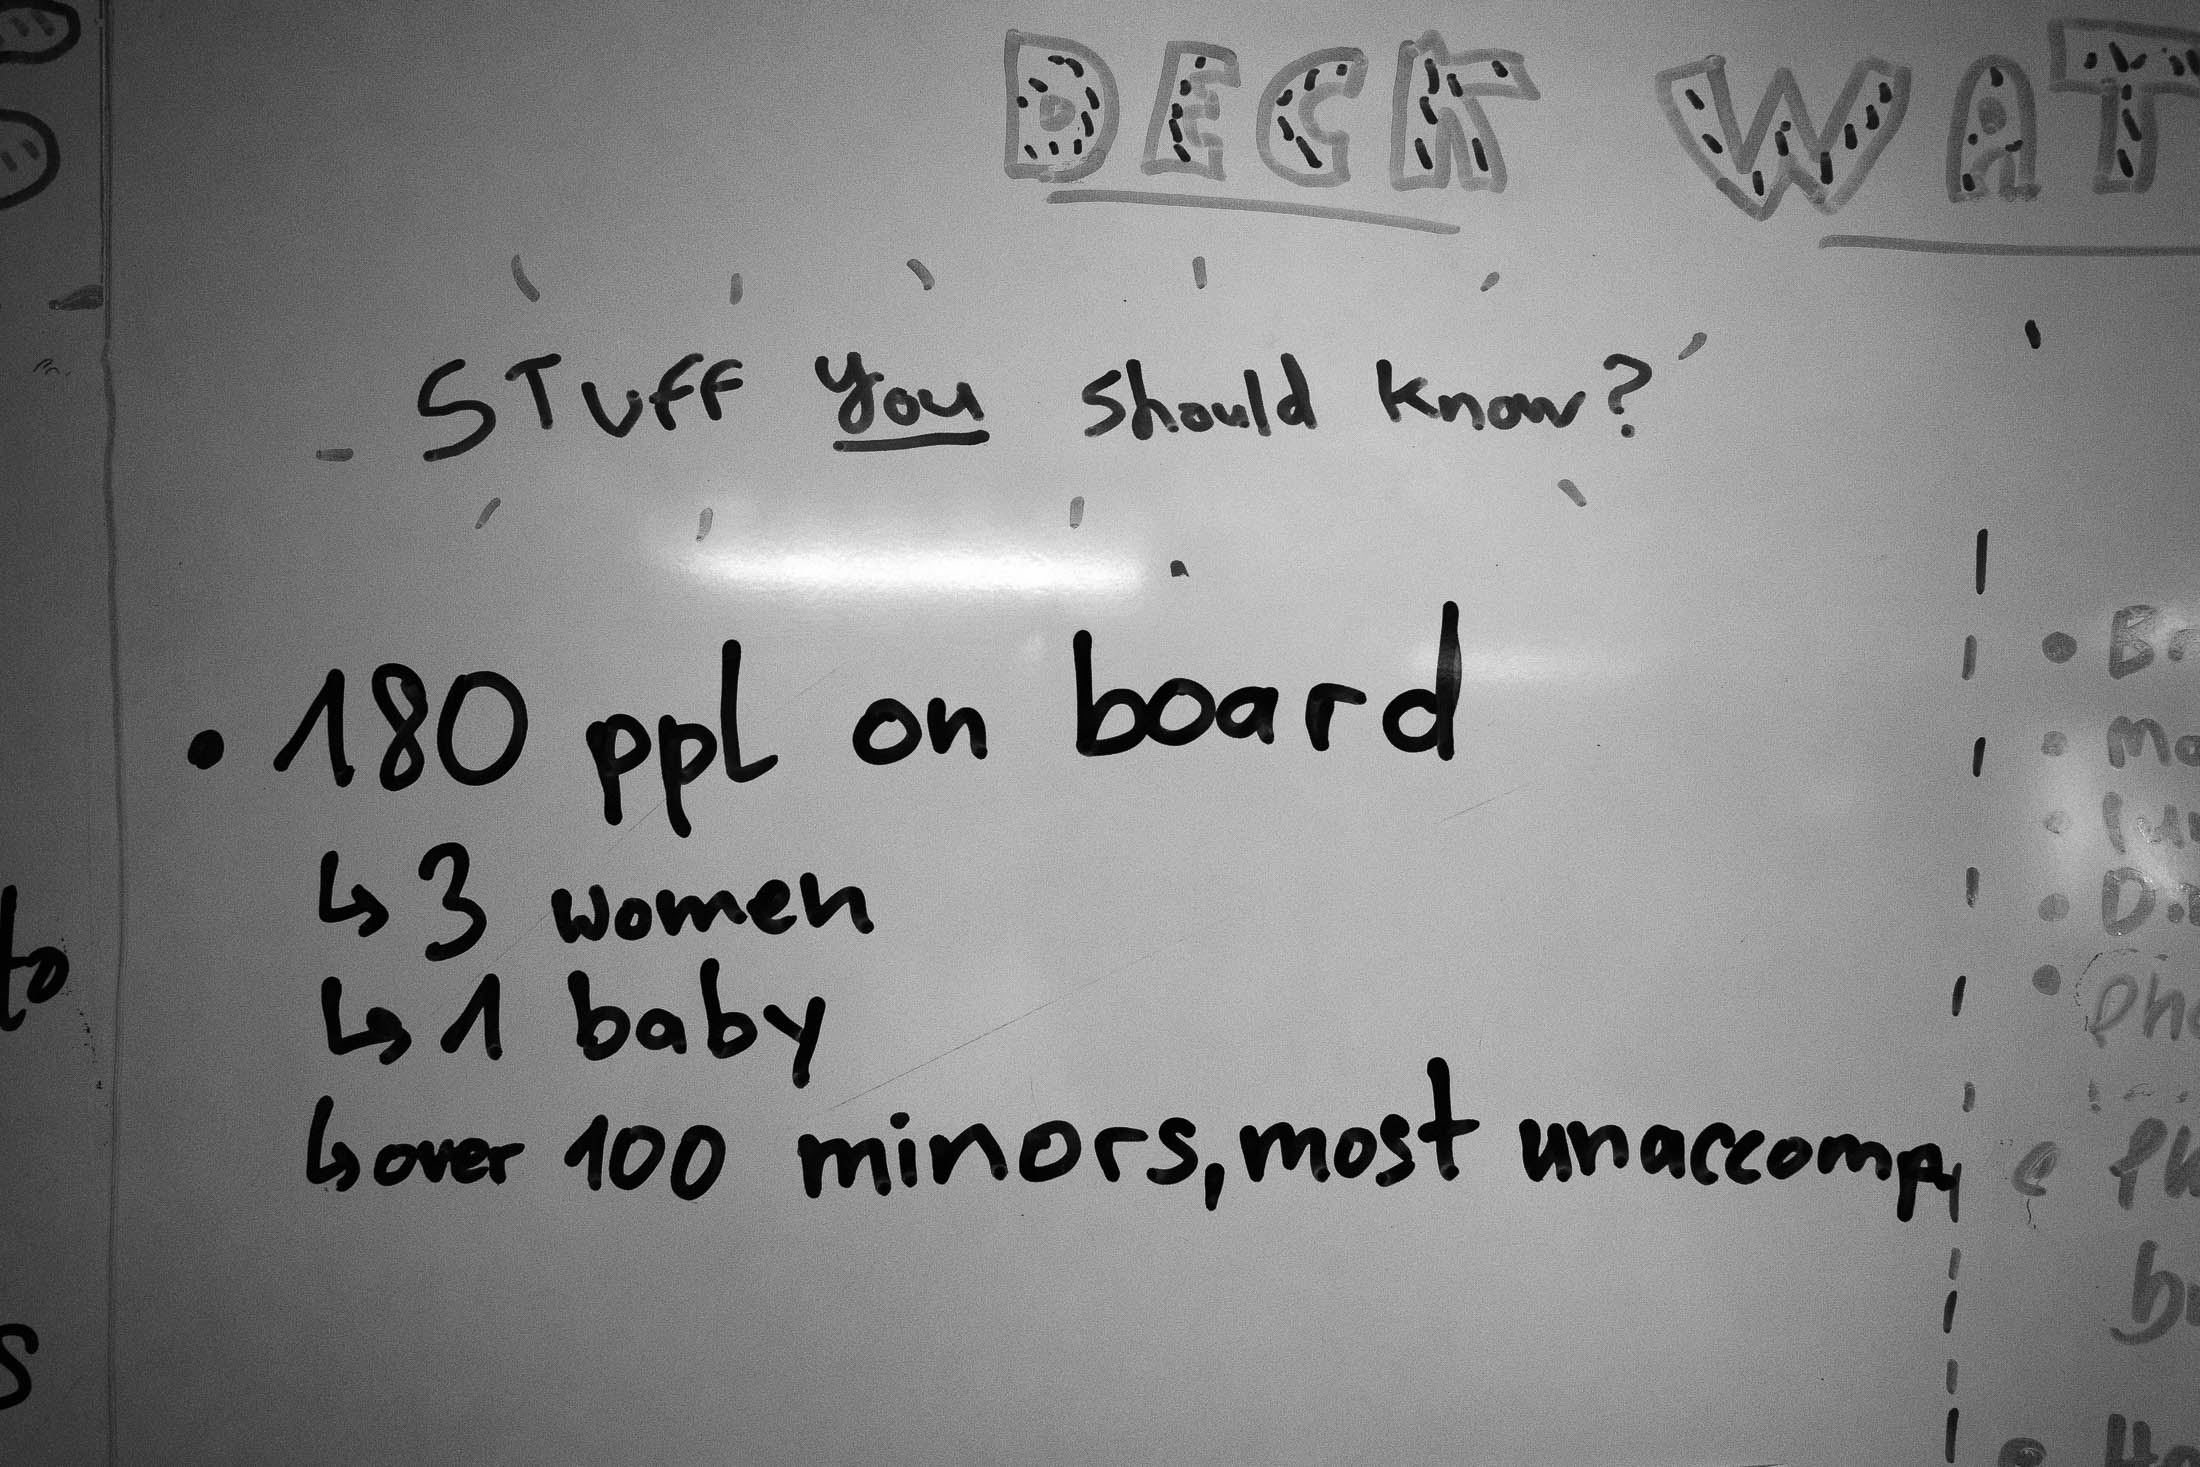 DECK WAT
STUFF You should know?
• 180 ppl on board
↳ 3 women
↳ 1 baby
↳ over 100 minors, most unaccomp,
to
s